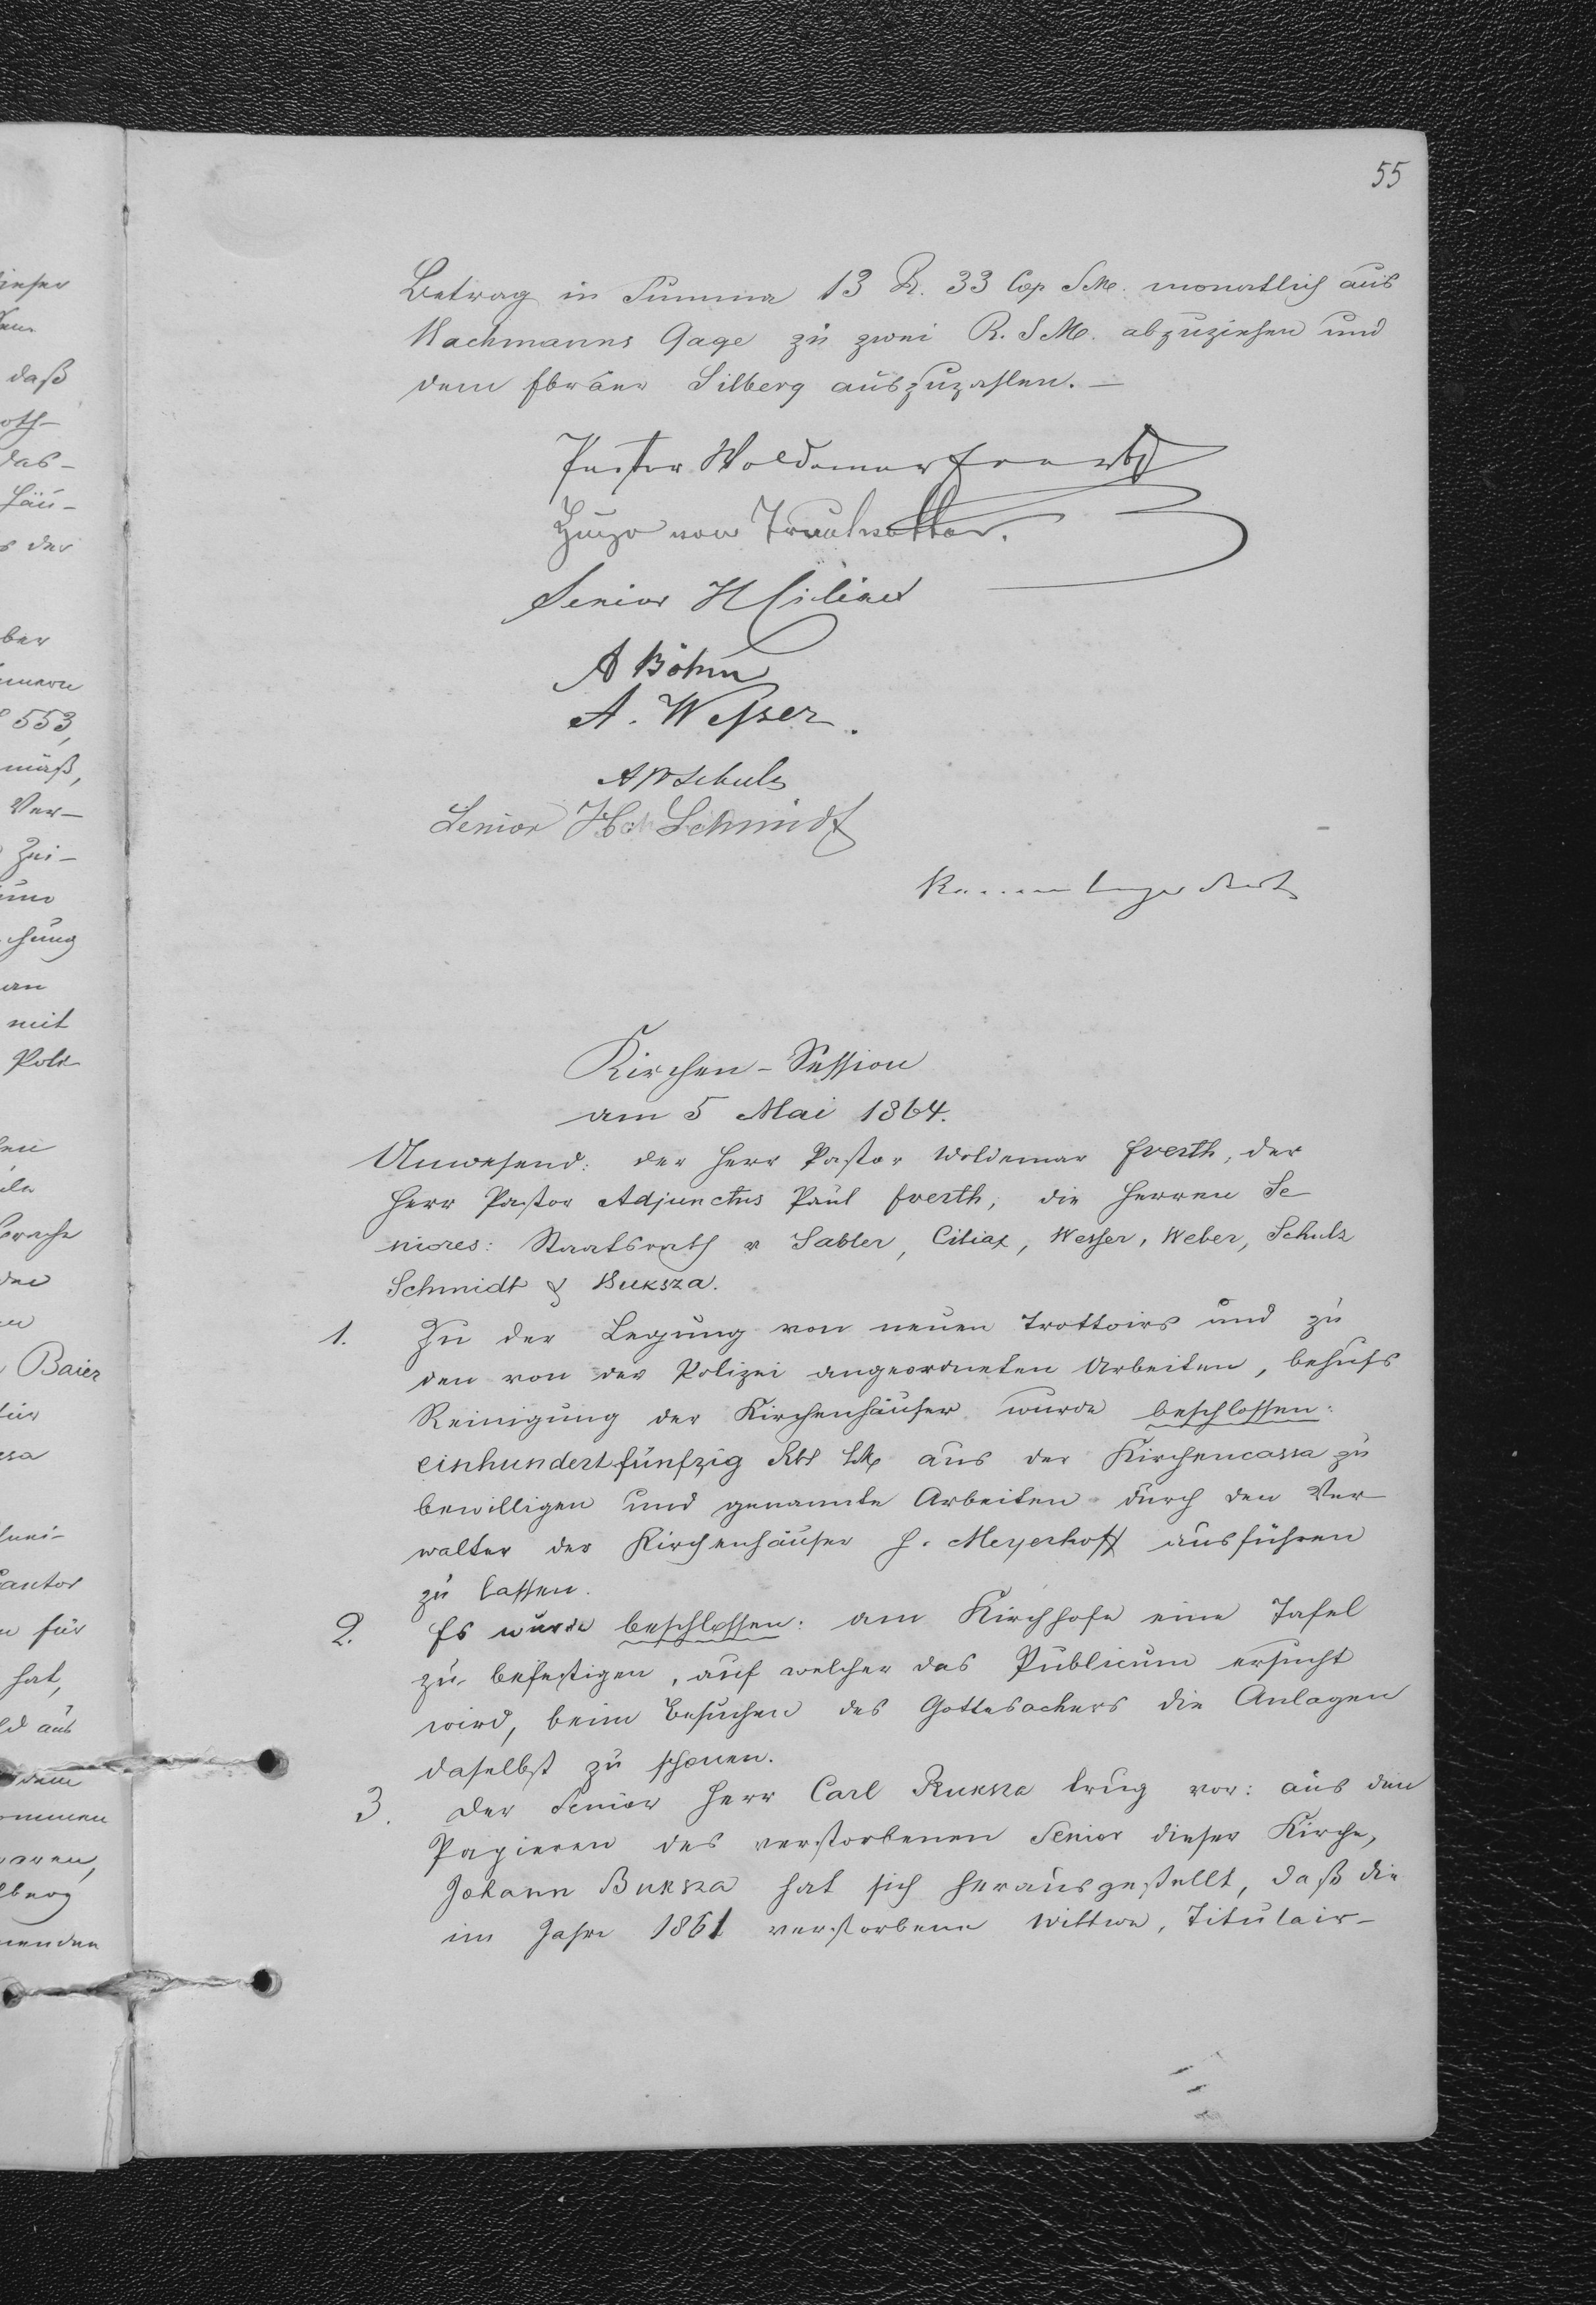 55
Betrag in Summa 13 R. 33 Cop SM. monatlich aus
Nachmanns Gage zu zwei R. SM. abzuziehen und
dem Ebräer Silberg auszuzahlen. —
Pastor Woldemar Everth
Hugo von Trautvetter.
Senior H Ciliax
A Böhm
A. Wesser.
A W Schulz
Senior Schmidt
Kirchen-Session
am 5 Mai 1864.
Anwesend: der Herr Pastor Woldemar Everth, der
Herr Pastor Adjunctus Paul Everth, die Herren Se-
niores: Staatsrath v Sabler, Ciliax, Wesser, Weber, Schulz
Schmidt & Buksza.
1. Zu der Legung von neuen Trottoirs und zu
den von der Polizei angeordneten Arbeiten, behufs
Reinigung der Kirchenhäuser wurde beschlossen:
einhundertfünfzig Rbl SM aus der Kirchencassa zu
bewilligen und genannte Arbeiten durch den Ver-
walter der Kirchenhäuser H. Meyerhoff ausführen
zu lassen.
2. Es wurde beschlossen: am Kirchhofe eine Tafel
zu befestigen, auf welcher das Publicum ersucht
wird, beim Besuchen des Gottesackers die Anlagen
daselbst zu schonen.
3. Der Senior Herr Carl Buksza trug vor: aus den
Papieren des verstorbenen Senior dieser Kirche,
Johann Buksza hat sich herausgestellt, daß die
im Jahre 1861 verstorbene Wittwe, Titulair-